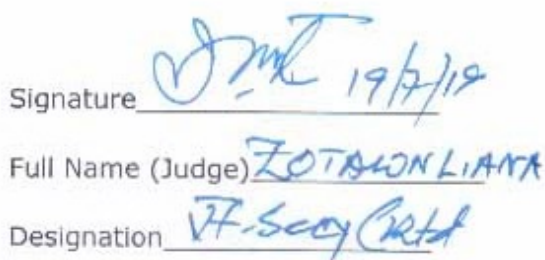 Signature 19/7/19
Full Name (Judge) ZOTAWNLIANA
Designation Jt. Secy (Retd